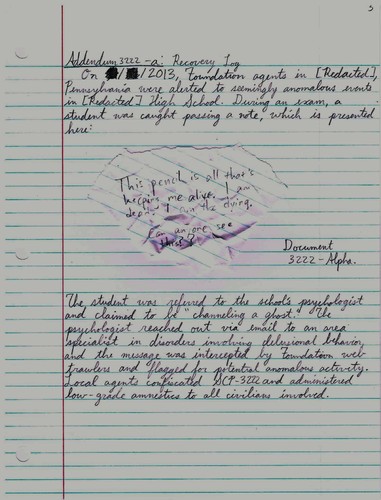 5
Addendum 3222-a: Recovery Log
On / /2013, Foundation agents in [Redacted],
Pennsylvania were alerted to seemingly anomalous events
in [Redacted] High School. During an exam, a
student was caught passing a note, which is presented
here:
This pencil is all that's
keeping me alive. I am
dead. I am the dying.
Can anyone see
this?
Document
3222-Alpha.
The student was referred to the school's psychologist
and claimed to be "channeling a ghost". The
psychologist reached out via email to an area
specialist in disorders involving delusional behavior,
and the message was intercepted by Foundation web
trawlers and flagged for potential anomalous activity.
Local agents confiscated SCP-3222 and administered
low-grade amnestics to all civilians involved.